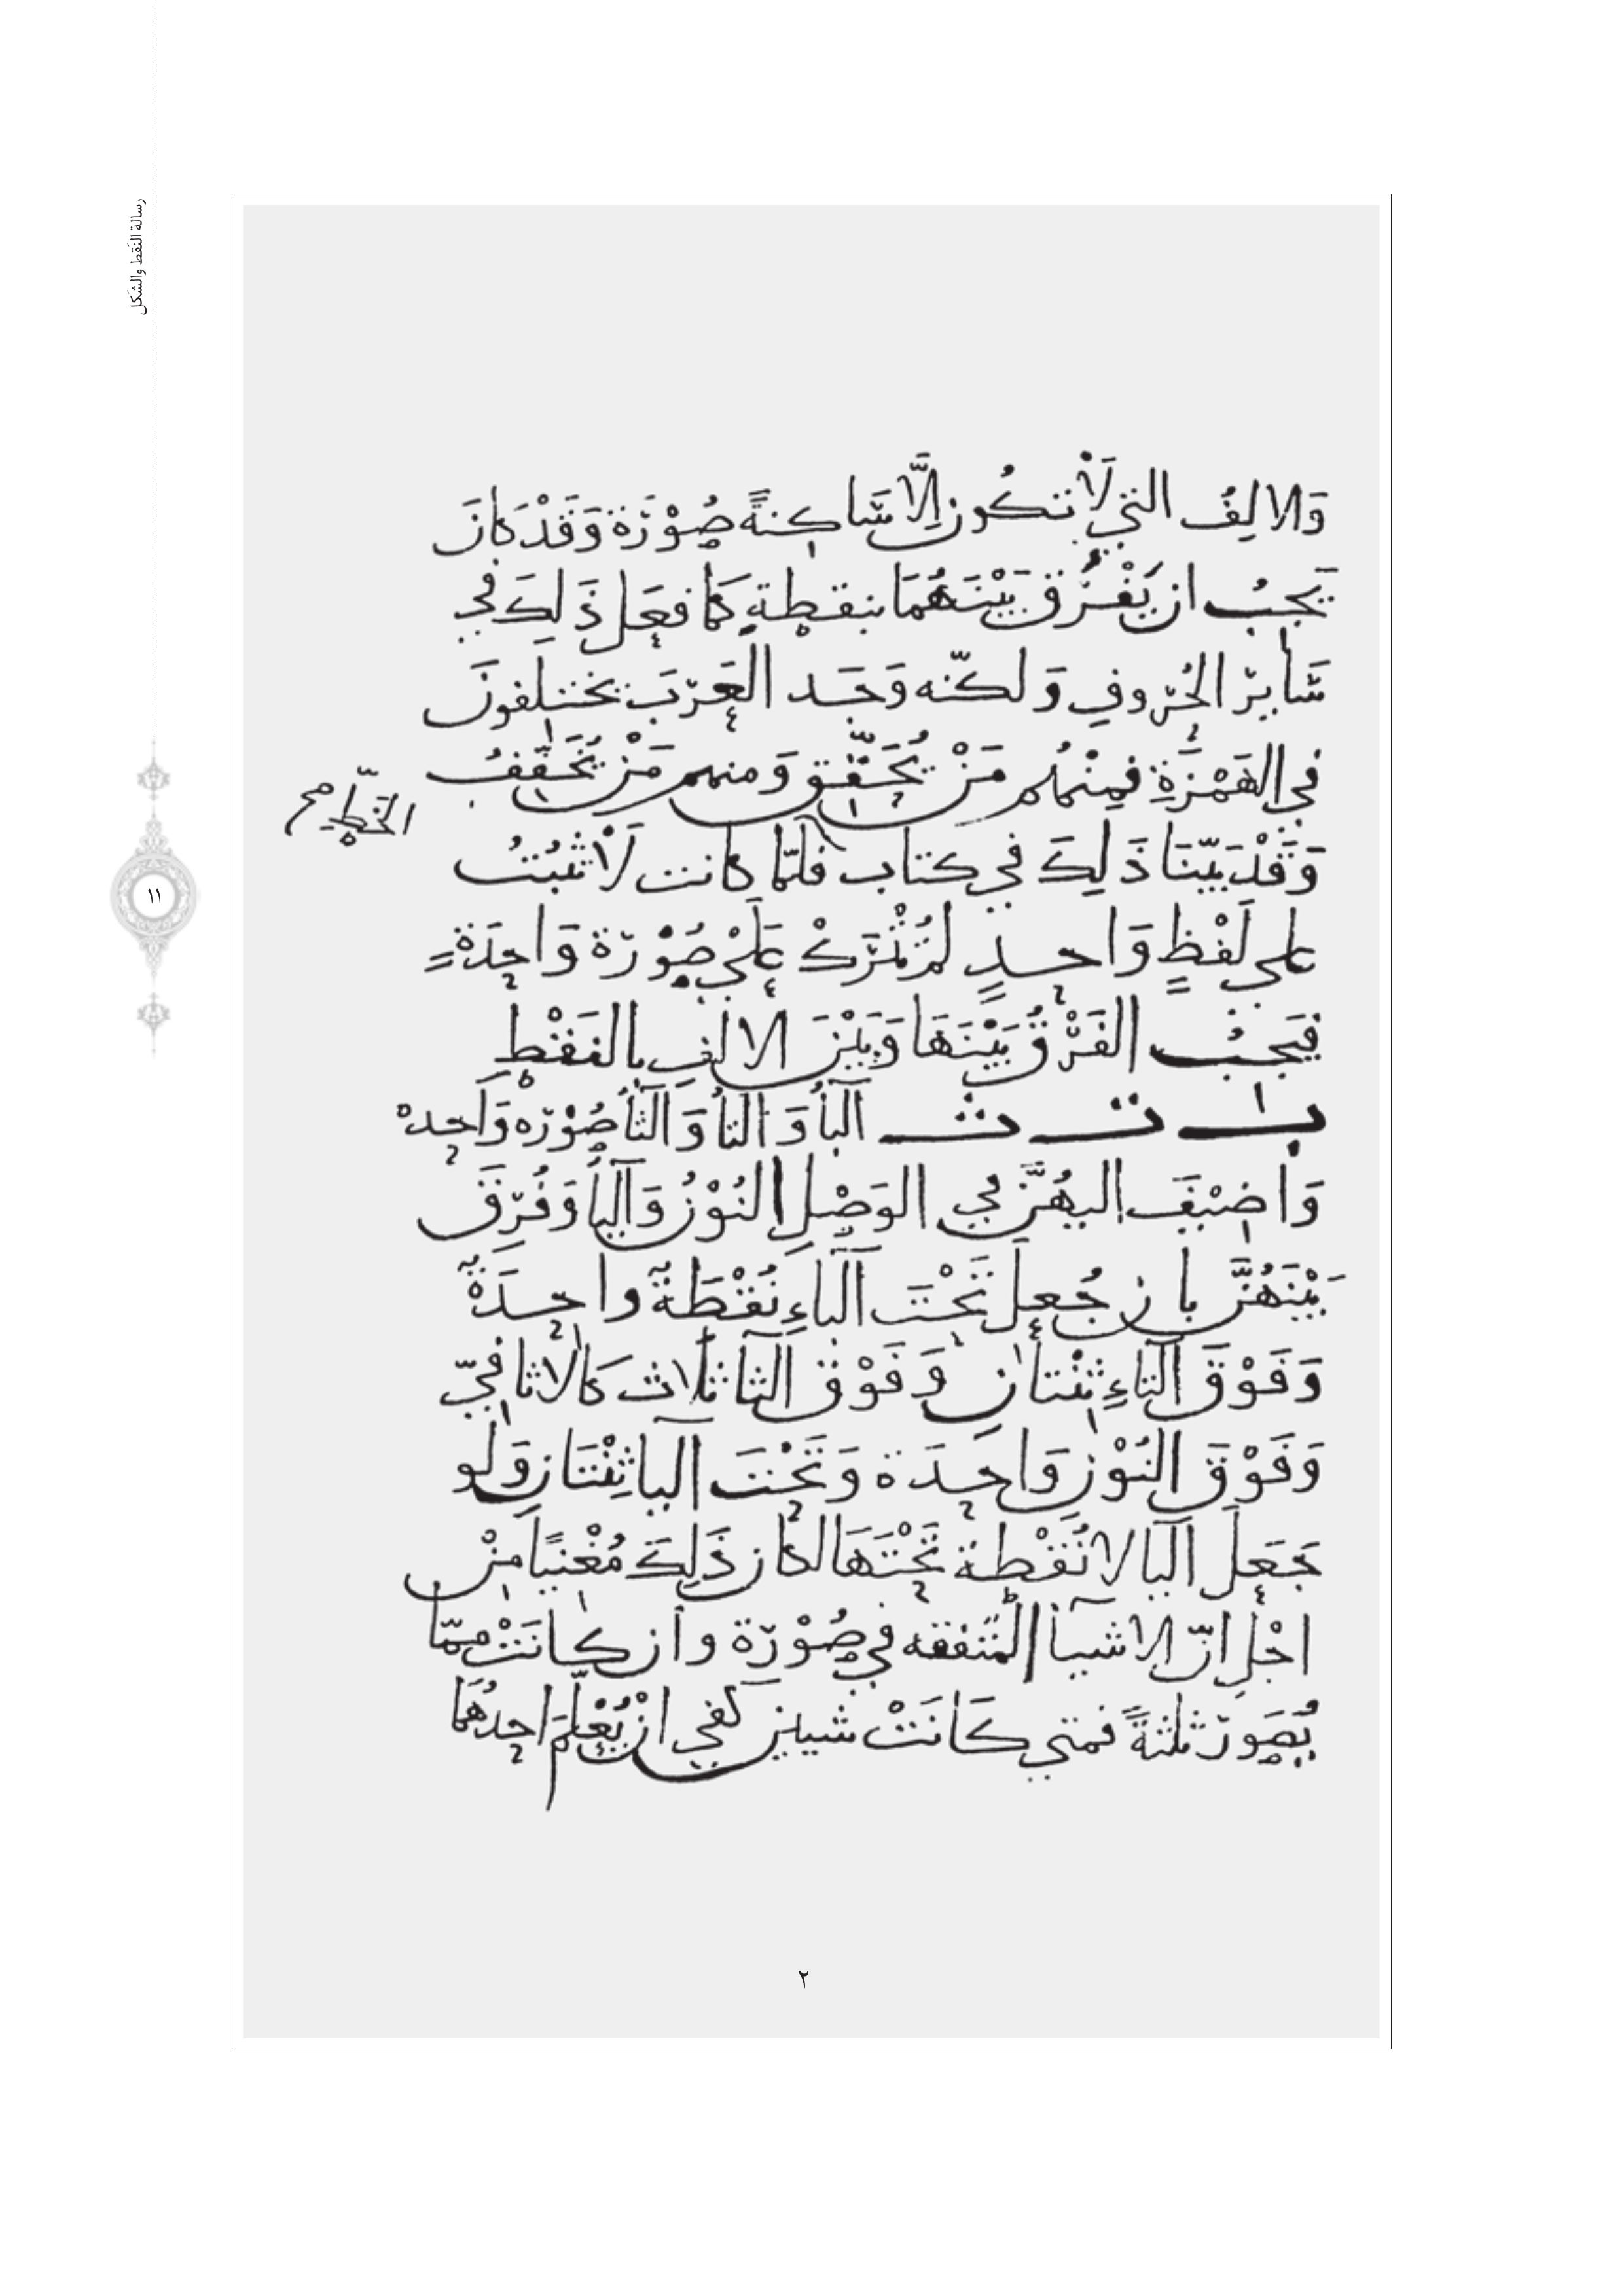 رسالة النَقط والشَكل
١١
وَالالِفُ التي لَا تَتكُون اِلَّا سَاكِنةً صُوْرَة وَقَدْ كَانَ
يَجِبُ ان يُفْرَّق بَيْنَهُمَا بنقطةٍ كَما فعَل ذَ لِكَ في
سَايرّ الحُرّوفِ وَلكنّه وَجَد العَرَبَ يختلِفونَ
في الهَمْزَةِ فمِنْهُم مَنْ يُحَقّق وَمنهم مَنْ يُخَفّفُ
وَقَدْ بَيّنَا ذَ لِكَ في كتاب الخَطِّ صح
فلمّا كانت لَا تثبُتُ
على لَفْظٍ وَاحدٍ لَمْ تُتْرَكْ عَلى صُوْرَة وَاحِدَةٍ
فيَجبُ الفَرْقُ بَيْنَهَا وَبَيْنَ الالِف بالنقْطِ
بـ تـ ثـ اَلبَاُ وَ التاُ وَ الثاُ صُوْرَه وَاحِده
وَاضِيْفَ اليهُنَّ في الوَصْل النُوْنُ وَاليَاُ وَفُرّقَ
بَيْنَهُنَّ بان جُعِلَ تَحْتَ البَاءِ نُقْطَةٌ واحِدَةٌ
وَفَوْقَ التاءِ ثِنْتانِ وَفَوْق الثا ثلاث كالاثافيّ
وَفَوْقَ النُوْن وَاحِدَة وَتَحْتَ اليا ثِنْتَانِ وَلو
جَعَلَ اليا لا نُقْطة تَحْتَهَا لكان ذَلِكَ مُغْنيًا مِنْ
اجْلِ انّ الاشيآ المتفقه في صُوْرَة وان كانَتْ ممّا
يُصَوَر ثلثةً فمتى كَانَتْ شيين كفى ان يُعْلَمَ احدُهُمَا
٢